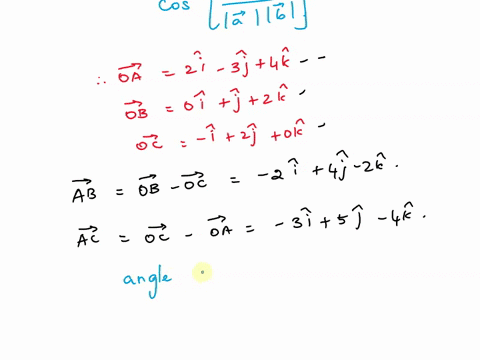 cos [ / |a⃗| |b⃗| ]
∴ OA⃗ = 2î - 3ĵ + 4k̂ - -
OB⃗ = 0î + ĵ + 2k̂
OC⃗ = -î + 2ĵ + 0k̂ -
AB⃗ = OB⃗ - OC⃗ = -2î + 4ĵ - 2k̂ .
AC⃗ = OC⃗ - OA⃗ = -3î + 5ĵ - 4k̂ .
angle